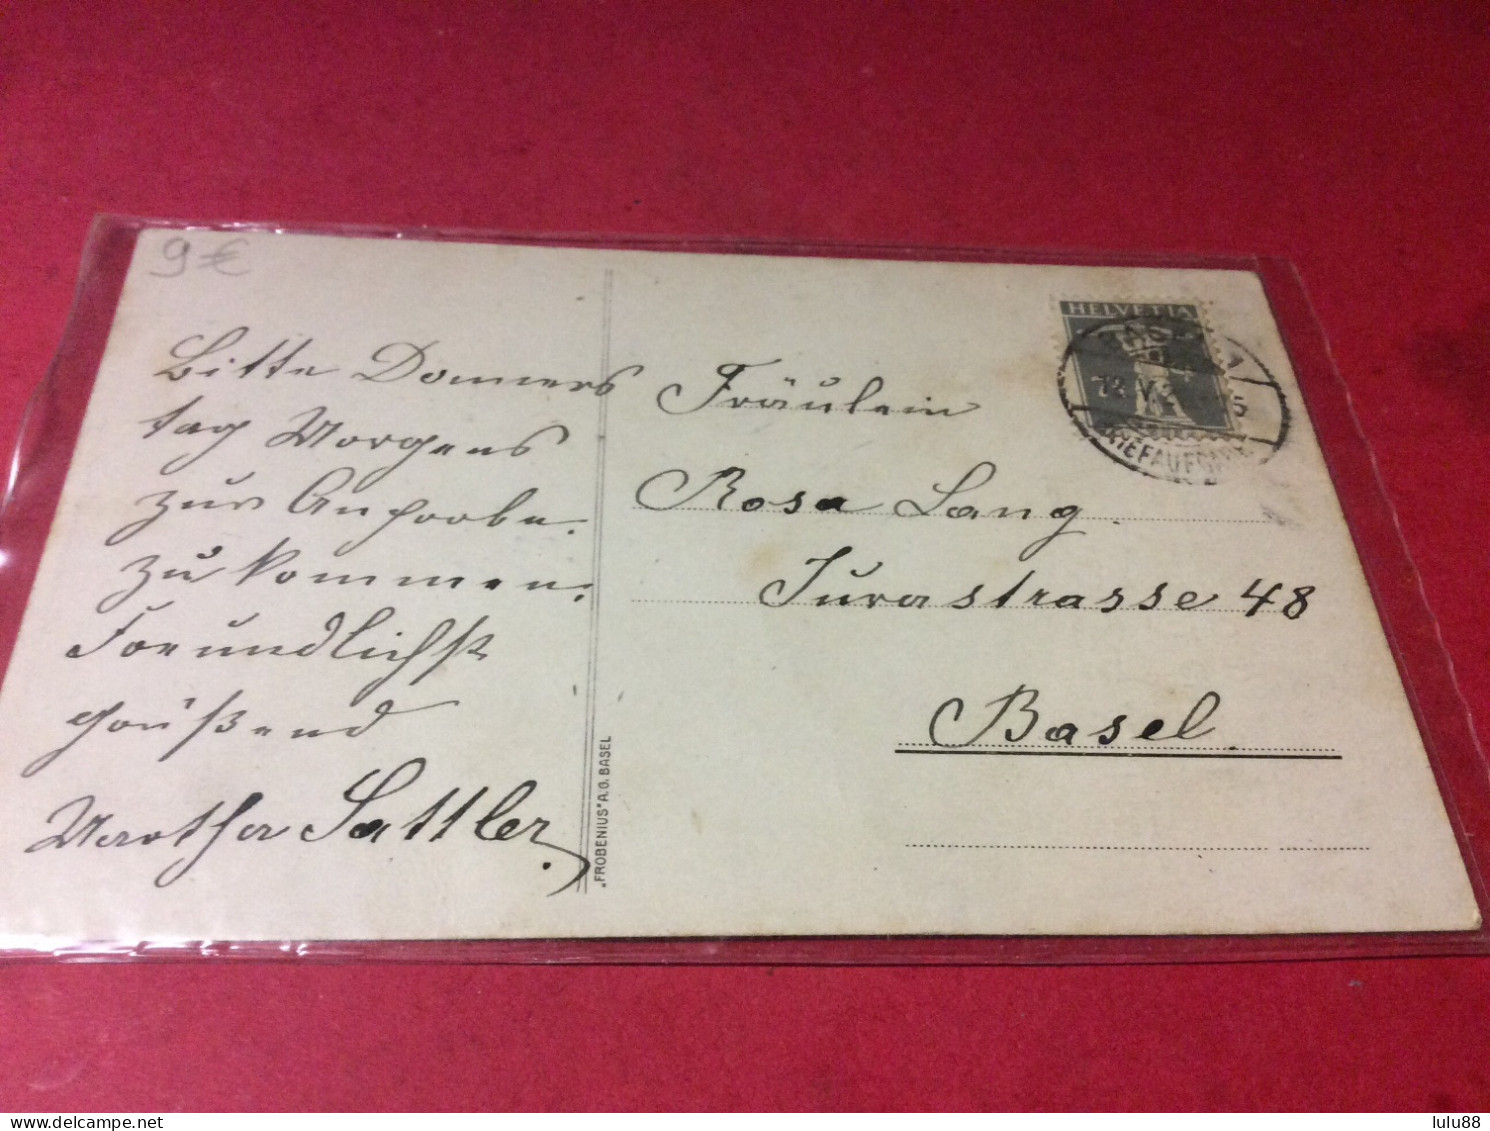 9 €
Bitte Donners
tag Morgens
zur Anprobe.
zu kommen.
Freundlichst
grüßend
Martha Sattler.
"FROBENIUS" A.G. BASEL
HELVETIA
BRIEFAUFGABE
Fräulein
Rosa Lang.
Jurastrasse 48
Basel.
lulu88